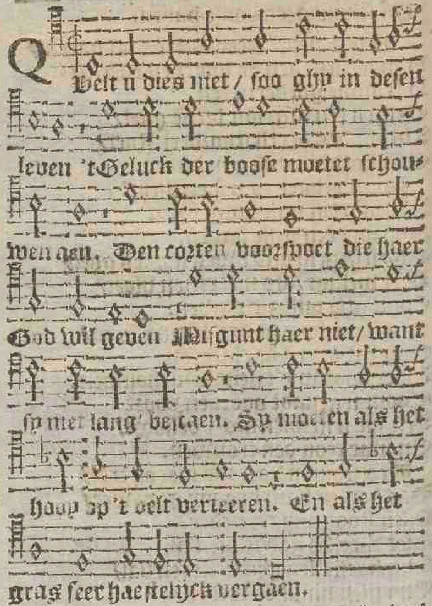 Qvelt u dies niet / soo ghy in desen
leven 't Geluck der boose moetet schou-
wen aen. Den corten voorspoet die haer
God wil geven Misgunt haer niet / want
sy niet lang' bestaen. Sy moeten als het
hooy op 't velt verteeren. En als het
gras seer haestelijck vergaen.